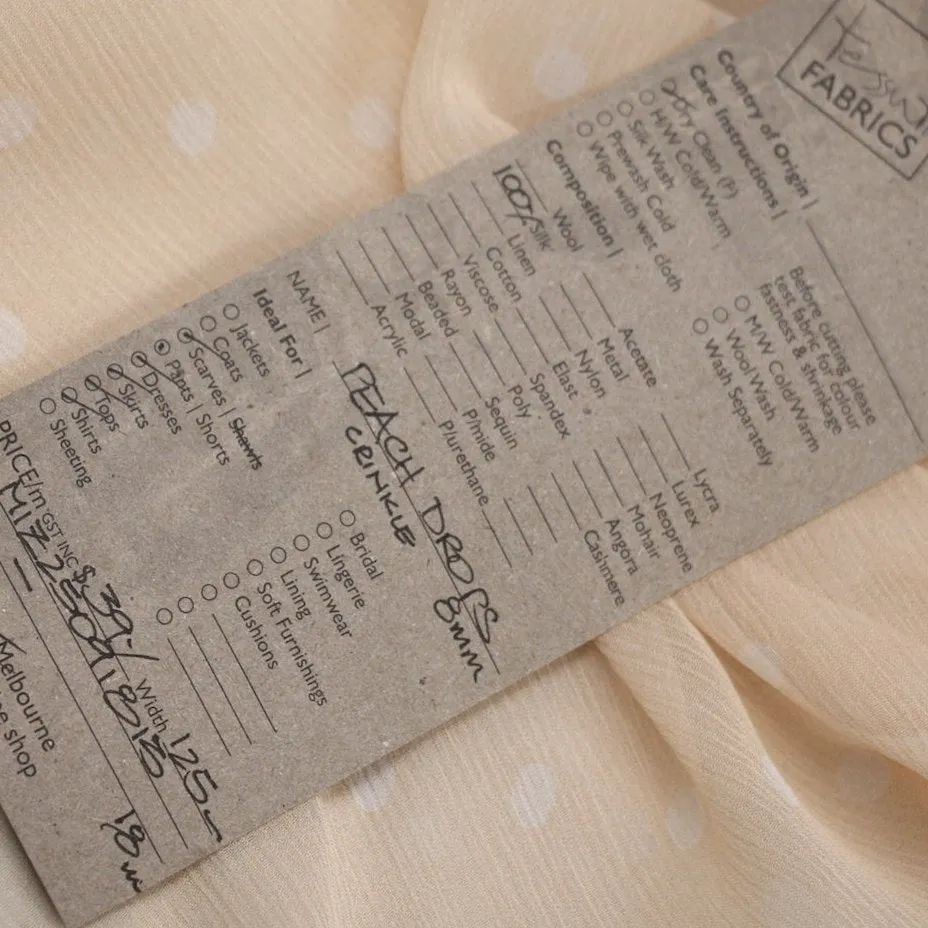 Tessuti
FABRICS
Country of Origin |
Care Instructions |
Dry Clean (P)
H/W Cold/Warm
Silk Wash
Prewash Cold
Wipe with wet cloth
Before cutting please
test fabric for colour
fastness & shrinkage
M/W Cold/Warm
Wool Wash
Wash Separately
Composition |
Wool
100% Silk
Linen
Cotton
Viscose
Rayon
Beaded
Modal
Acrylic
Acetate
Metal
Nylon
Elast
Spandex
Poly
Sequin
P/mide
Plurethane
Lycra
Lurex
Neoprene
Mohair
Angora
Cashmere
NAME | PEACH DROPS
CRINKLE 8mm
Ideal For |
Jackets
Coats
Scarves | Shawls
Pants | Shorts
Dresses
Skirts
Tops
Shirts
Sheeting
Bridal
Lingerie
Swimwear
Lining
Soft Furnishings
Cushions
PRICE/m GST INC $ 39.- Width 125cm
18m
Melbourne
shop